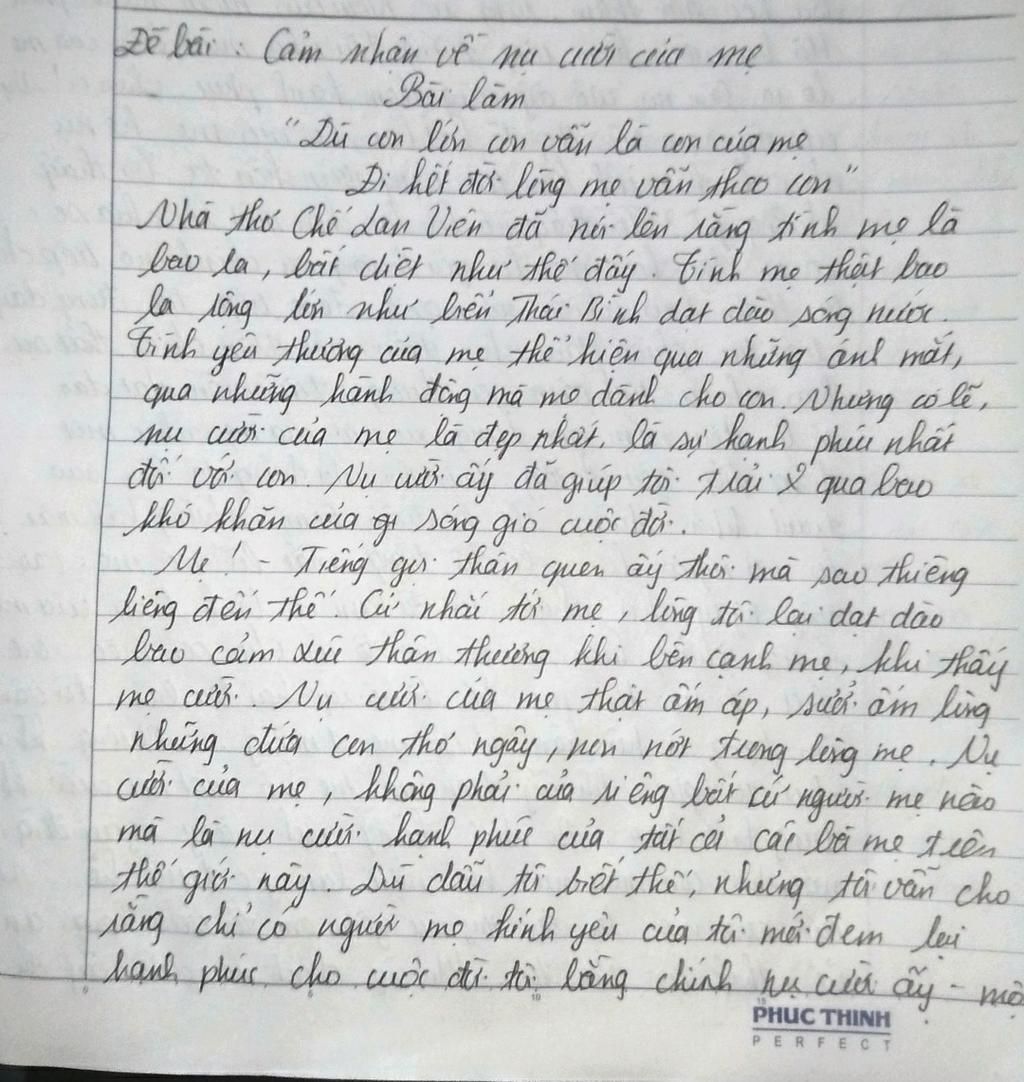 Đề bài: Cảm nhận về nụ cười của mẹ
Bài làm
"Dù con lớn con vẫn là con của mẹ
Đi hết đời lòng mẹ vẫn theo con"
Nhà thơ Chế Lan Viên đã nói lên rằng tình mẹ là
bao la, bất diệt như thế đấy. Tình mẹ thật bao
la rộng lớn như biển Thái Bình dạt dào sóng nước.
Tình yêu thương của mẹ thể hiện qua những ánh mắt,
qua những hành động mà mẹ dành cho con. Nhưng có lẽ,
nụ cười của mẹ là đẹp nhất, là sự hạnh phúc nhất
đối với con. Nụ cười ấy đã giúp tôi trải qua bao
khó khăn của gi sóng gió cuộc đời.
Mẹ! - Tiếng gọi thân quen ấy thôi mà sao thiêng
liêng đến thế. Cứ nhắc tới mẹ, lòng tôi lại dạt dào
bao cảm xúc thân thương khi bên cạnh mẹ, khi thấy
mẹ cười. Nụ cười của mẹ thật ấm áp, sưởi ấm lòng
những đứa con thơ ngây, non nớt trong lòng mẹ. Nụ
cười của mẹ, không phải của riêng bất cứ người mẹ nào
mà là nụ cười hạnh phúc của tất cả các bà mẹ trên
thế giới này. Dù dẫu tôi biết thế, nhưng tôi vẫn cho
rằng chỉ có người mẹ kính yêu của tôi mới đem lại
hạnh phúc cho cuộc đời tôi bằng chính nụ cười ấy - mộ
PHUC THINH
PERFECT